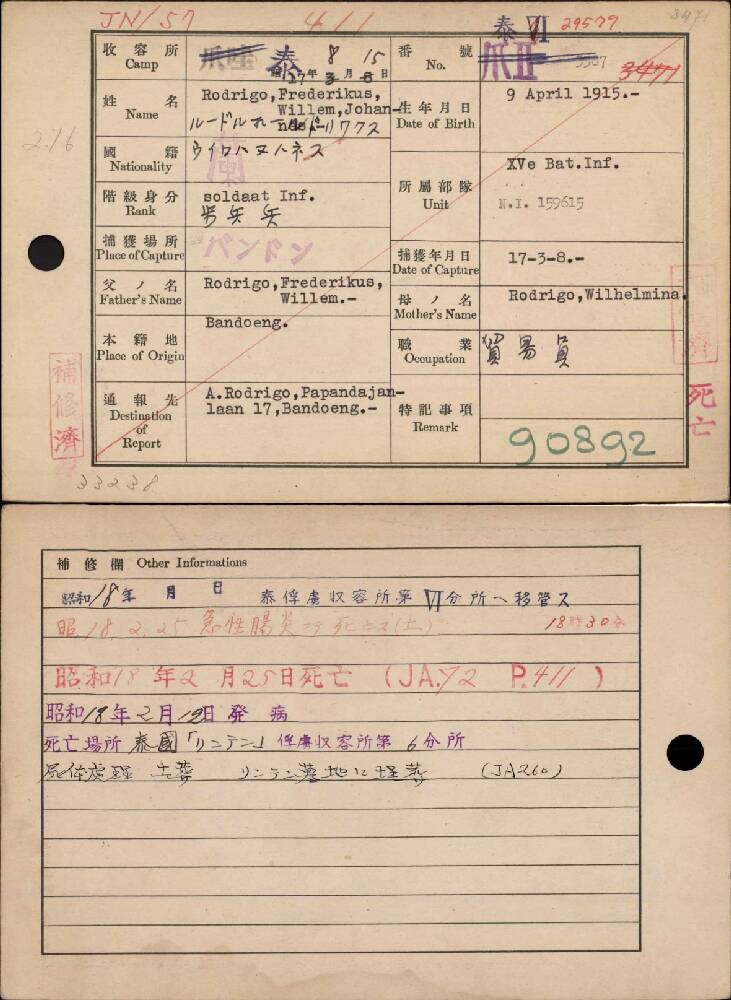 JN/57 411 泰 VI 29579 3471
收容所 Camp 爪哇 泰 8 15 17年3月8日
番號 No. 爪II 3471
姓名 Name Rodrigo,Frederikus, Willem,Johan-
生年月日 Date of Birth 9 April 1915.-
216
國籍 Nationality 蘭 ウイロハヌハネス
階級身分 Rank soldaat Inf. 歩兵兵
所屬部隊 Unit XVe Bat.Inf. N.I. 159615
捕獲場所 Place of Capture バンドン
捕獲年月日 Date of Capture 17-3-8.-
父ノ名 Father's Name Rodrigo,Frederikus, Willem.-
母ノ名 Mother's Name Rodrigo,Wilhelmina.
本籍地 Place of Origin Bandoeng.
職業 Occupation 貿易員
通報先 Destination of Report A.Rodrigo,Papandajan-
laan 17,Bandoeng.-
特記事項 Remark 90892
補修濟
死亡
33238
補修欄 Other Informations
昭和18年 月 日 泰俘虜収容所第VI分所ヘ移管ス
昭18.2.25 急性腸炎ニテ死亡ス(土) 18時30分
昭和18年2月25日死亡 (JA.72 P.411)
昭和18年2月19日発病
死亡場所 泰國「リンテン」俘虜収容所第6分所
屍体處理 土葬 リンテン墓地に埋葬 (JA260)